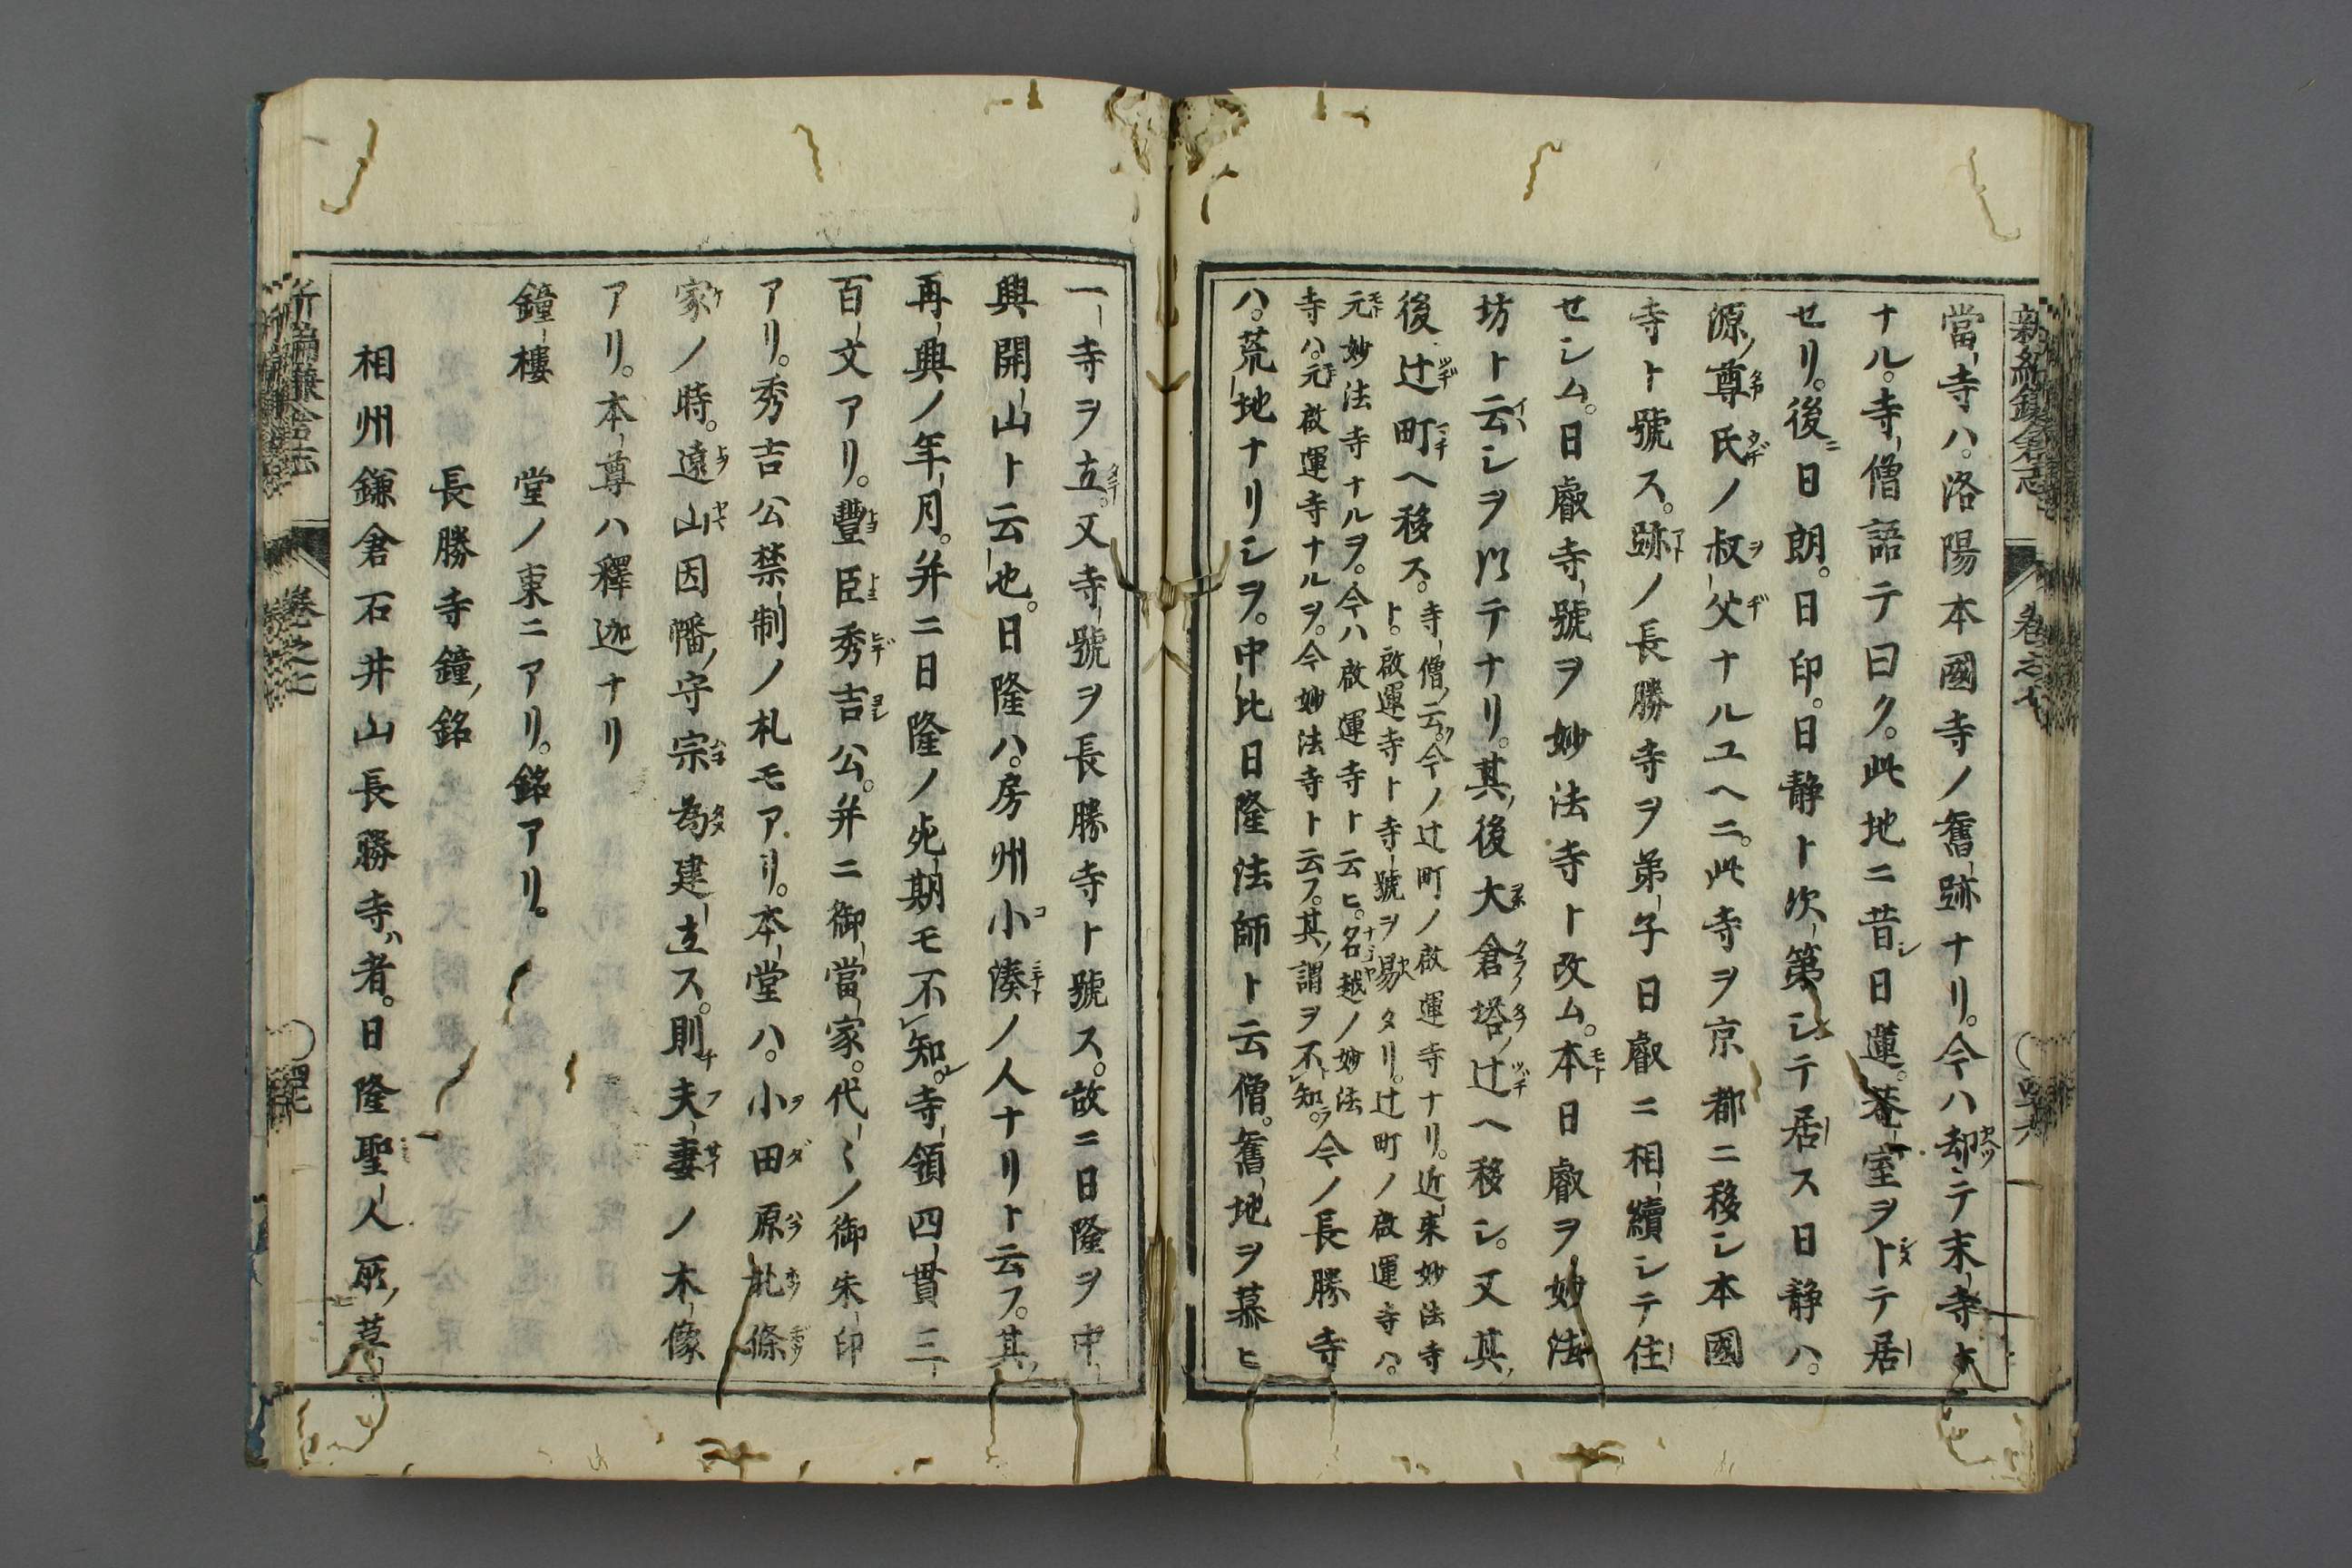 新編鎌倉志 卷之七
當寺ハ。洛陽本國寺ノ舊跡ナリ。今ハ却テ末寺ト
ナル。寺僧語テ曰ク。此地ニ昔日蓮。菴室ヲトテ居
セリ。後日朗。日印。日靜ト次第シテ居ス日靜ハ。
源尊氏ノ叔父ナルユヘニ。此寺ヲ京都ニ移シ本國
寺ト號ス。跡ノ長勝寺ヲ弟子日叡ニ相續シテ住
セシム。日叡寺號ヲ妙法寺ト改ム。本日叡ヲ妙法
坊ト云シヲ以テナリ。其後大倉塔辻ヘ移シ。又其
後辻町ヘ移ス。
寺僧云。今ノ辻町ノ啟運寺ナリ。近來妙法寺
ト。啟運寺ト寺號ヲ易タリ。辻町ノ啟運寺ハ。
元妙法寺ナルヲ。今ハ啟運寺ト云ヒ。名越ノ妙法
寺ハ。元啟運寺ナルヲ。今妙法寺ト云フ。其謂ヲ不知。
今ノ長勝寺
ハ。荒地ナリシヲ。中比日隆法師ト云僧。舊地ヲ慕ヒ
一寺ヲ立。又寺號ヲ長勝寺ト號ス。故ニ日隆ヲ中
興開山ト云也。日隆ハ。房州小湊ノ人ナリト云フ。其
再興ノ年月。并ニ日隆ノ死期モ不知。寺領四貫三
百文アリ。豐臣秀吉公。并ニ御當家。代〻ノ御朱印
アリ。秀吉公禁制ノ札モアリ。本堂ハ。小田原北條
家ノ時。遠山因幡守宗為建立ス。則夫妻ノ木像
アリ。本尊ハ釋迦ナリ
鐘樓 堂ノ東ニアリ。銘アリ。
長勝寺鐘銘
相州鎌倉石井山長勝寺者。日隆聖人所草
新編鎌倉志 卷之七 四七